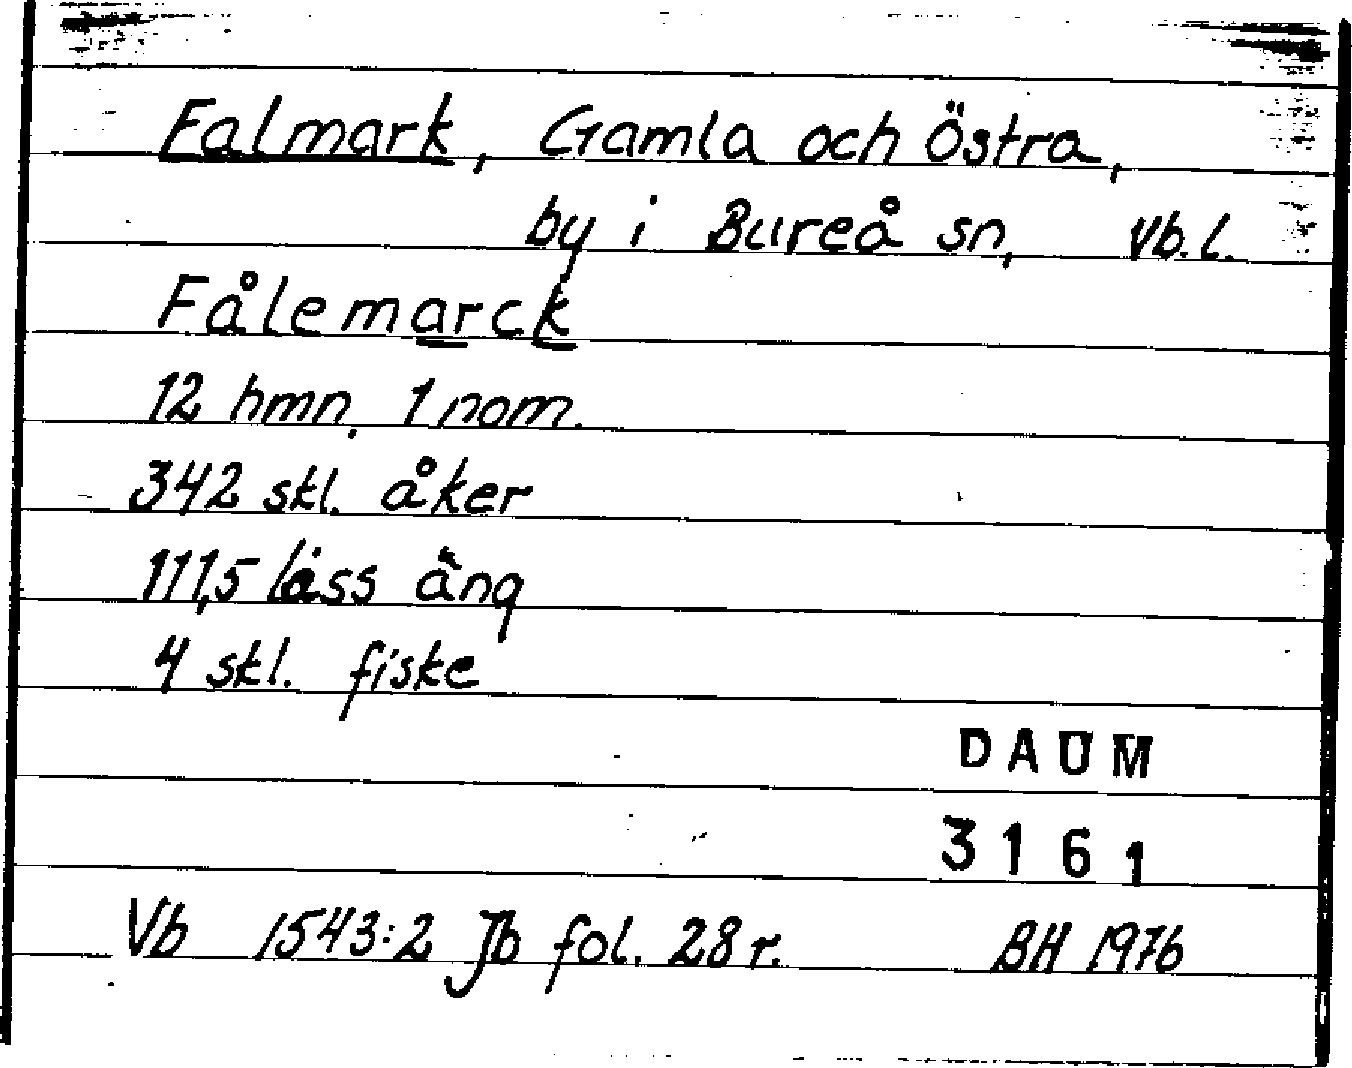 Falmark, Gamla och Östra,
by i Bureå sn, Vb.l.
Fålemarck
12 hmn, 1 nom.
342 skl. åker
111,5 läss äng
4 skl. fiske
DAUM
3161
Vb 1543:2 Jb fol. 28 r. BH 1976